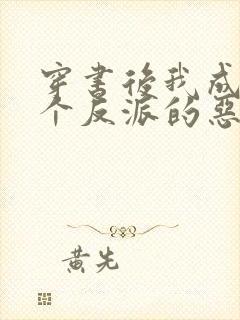 穿书后我成
个反派的恶
黄先